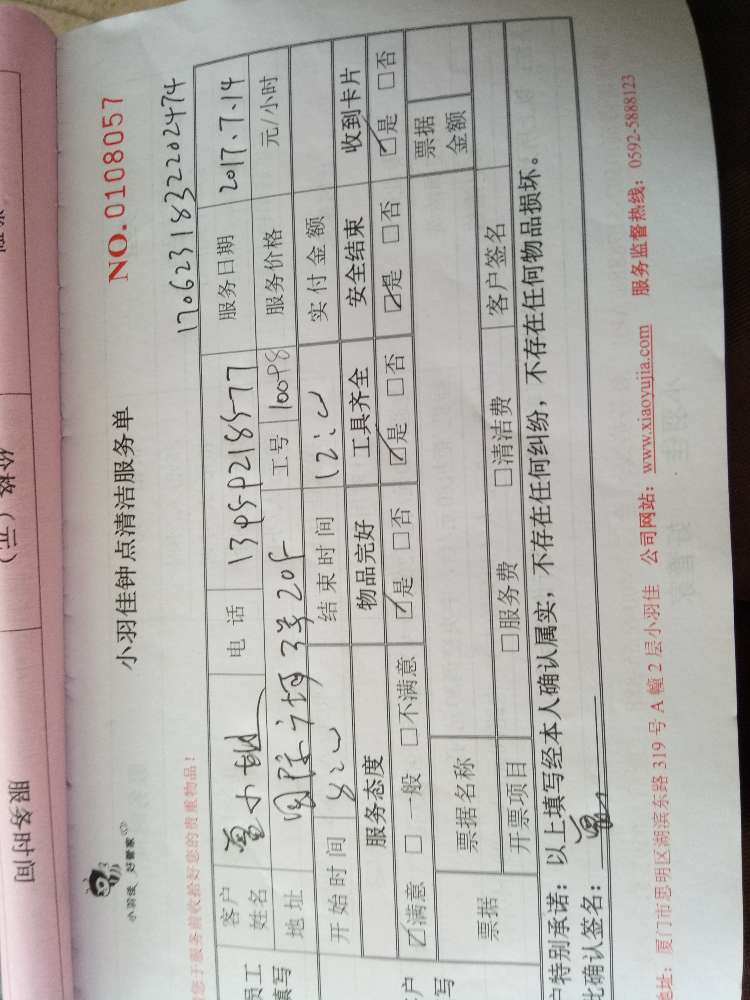 小羽佳 好管家
小羽佳钟点清洁服务单
NO.0108057
1706231832202474
您于服务前收拾好您的贵重物品！
员工
填写
客户
姓名
电话
服务日期 2017.7.14
地址
3栋20F
工号 10098
服务价格 元/小时
开始时间 8:00
结束时间 12:00
实付金额
服务态度 物品完好 工具齐全 安全结束 收到卡片
☑满意 □一般 □不满意 ☑是 □否 ☑是 □否 ☑是 □否 ☑是 □否
户
写
票据
票据名称
票据
金额
开票项目 □服务费 □清洁费 客户签名
户特别承诺：以上填写经本人确认属实，不存在任何纠纷，不存在任何物品损坏。
此确认签名：
地址：厦门市思明区湖滨东路 319 号 A 幢 2 层小羽佳 公司网站：www.xiaoyujia.com 服务监督热线：0592-5888123
价格（元）
服务时间